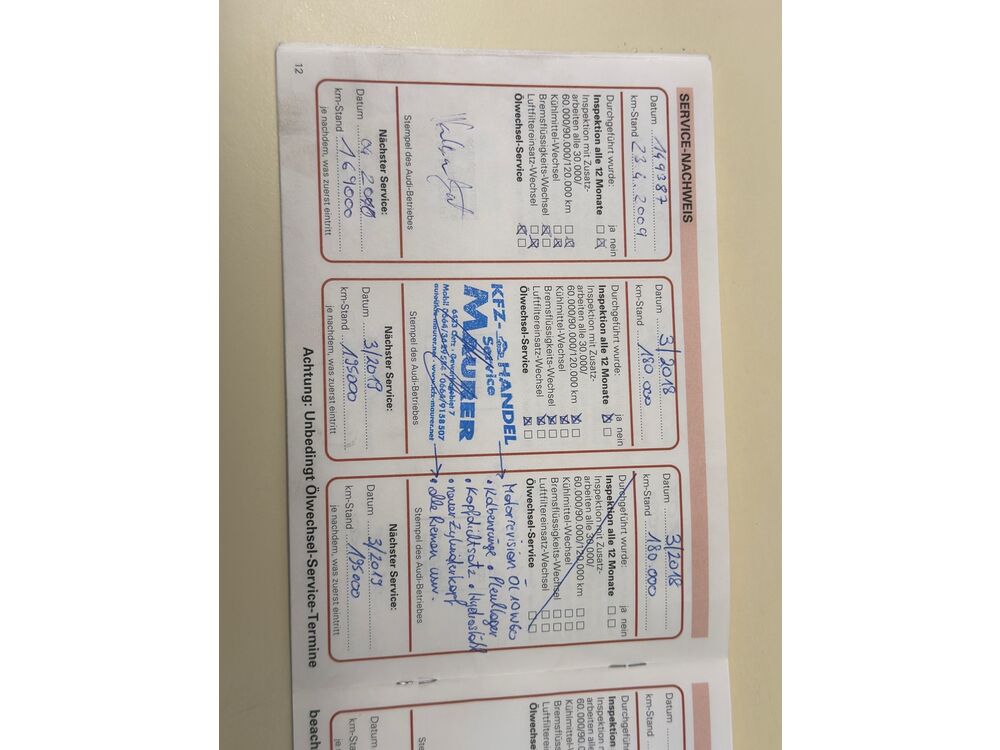 SERVICE-NACHWEIS
Datum 149387
km-Stand 23.4. 2009
Durchgeführt wurde: ja nein
Inspektion alle 12 Monate
Inspektion mit Zusatz-
arbeiten alle 30.000/
60.000/90.000/120.000 km
Kühlmittel-Wechsel
Bremsflüssigkeits-Wechsel
Luftfiltereinsatz-Wechsel
Ölwechsel-Service
Stempel des Audi-Betriebes
Nächster Service:
Datum 04 2010
km-Stand 164000
je nachdem, was zuerst eintritt
12
Datum 3/2018
km-Stand 180.000
Durchgeführt wurde: ja nein
Inspektion alle 12 Monate
Inspektion mit Zusatz-
arbeiten alle 30.000/
60.000/90.000/120.000 km
Kühlmittel-Wechsel
Bremsflüssigkeits-Wechsel
Luftfiltereinsatz-Wechsel
Ölwechsel-Service
KFZ- HANDEL
Service
MAURER
Stempel des Audi-Betriebes
Nächster Service:
Datum 3/2019
km-Stand 195000
je nachdem, was zuerst eintritt
Datum 3/2018
km-Stand 180.000
Durchgeführt wurde: ja nein
Inspektion alle 12 Monate
Inspektion mit Zusatz-
arbeiten alle 30.000/
60.000/90.000/120.000 km
Kühlmittel-Wechsel
Bremsflüssigkeits-Wechsel
Luftfiltereinsatz-Wechsel
Ölwechsel-Service
Motorrevision Öl 10W60
• Kolbenringe • Pleullager
• Kopfdichtsatz • Hydrostößl
• neuer Zylinderkopf
• alle Riemen usw.
Stempel des Audi-Betriebes
Nächster Service:
Datum 3/2019
km-Stand 195000
je nachdem, was zuerst eintritt
Achtung: Unbedingt Ölwechsel-Service-Termine
Datum
km-Stand
Durchgeführt
Inspektion
Inspektion m
arbeiten alle
60.000/90.0
Kühlmittel-W
Bremsflüss
Luftfilterein
Ölwechsel-
Ste
Datum
km-Stand
je
beach